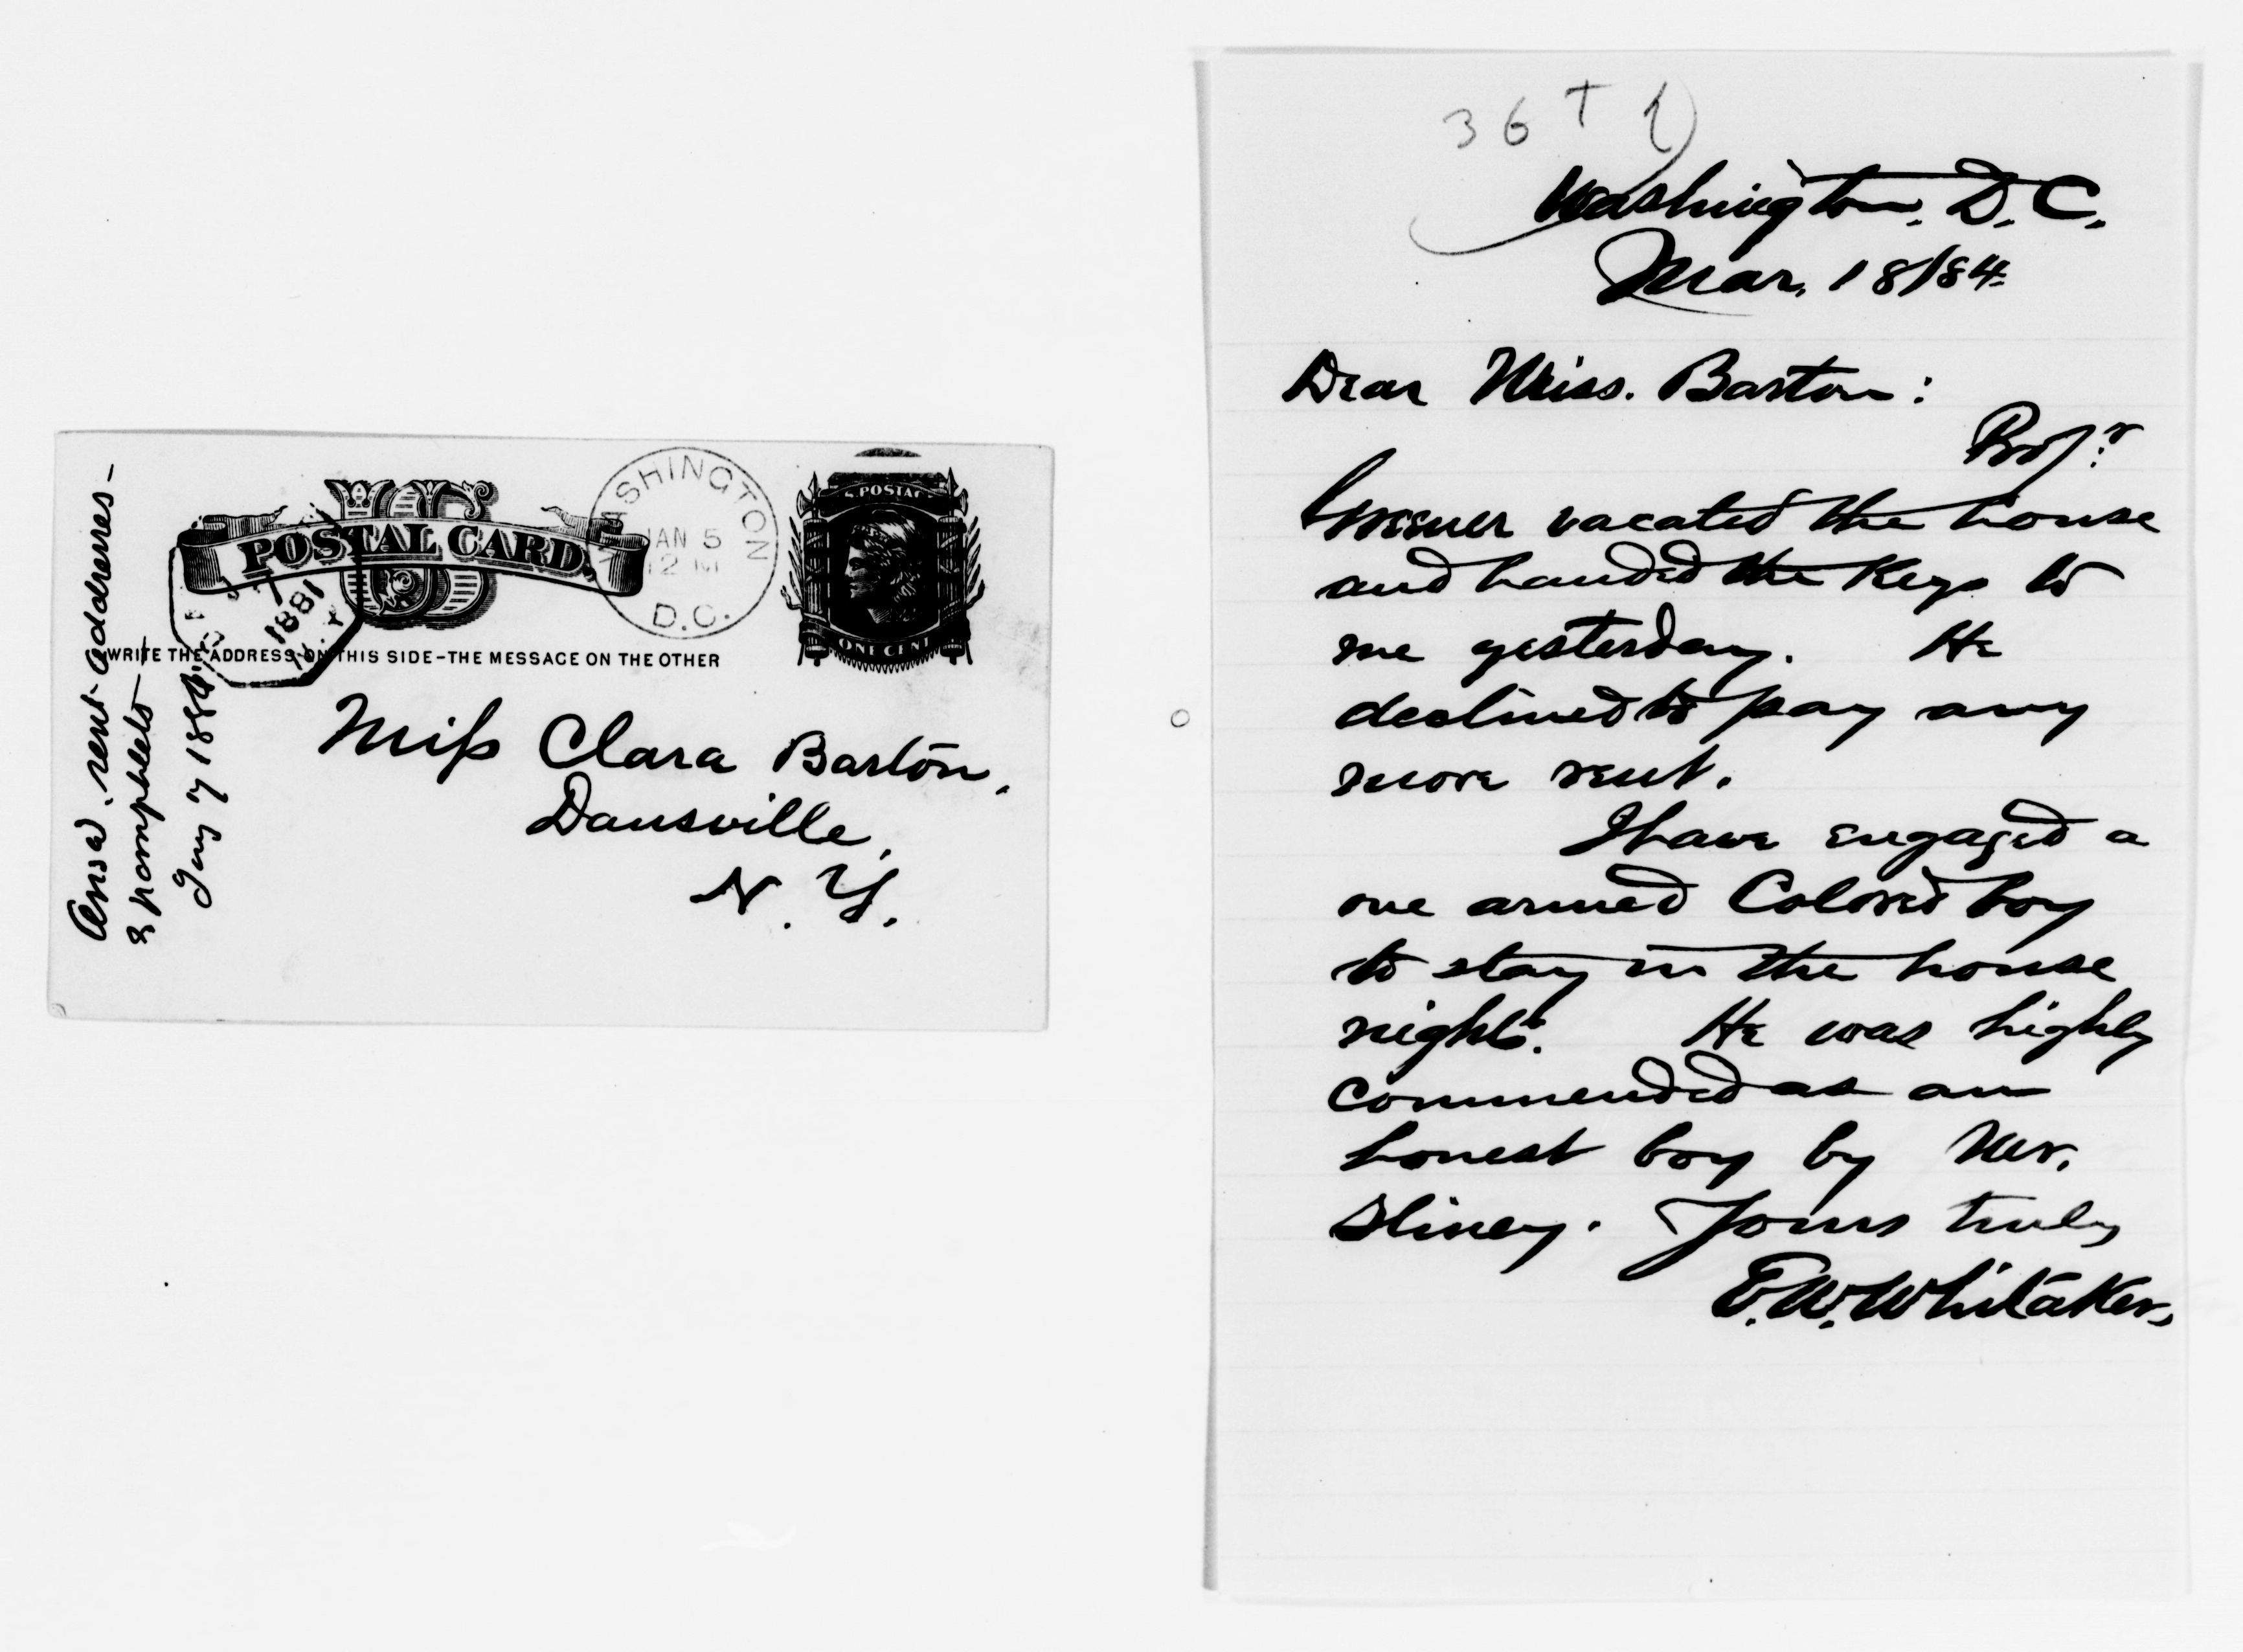 Answd. sent addresses -
2 pamphlets -
Jany 7 1881
US
POSTAL CARD.
WASHINGTON
JAN 5
12 M
D.C.
1881
N.Y.
U.S. POSTAGE
ONE CENT
WRITE THE ADDRESS ON THIS SIDE - THE MESSAGE ON THE OTHER
Miss Clara Barton,
Dansville,
N. Y.
36
Washington, D. C.
Mar, 18/84
Dear Miss. Barton:
Prof.r
vacated the house
and handed the Keys to
me yesterday. He
declined to pay any
more rent.
I have engaged a
one armed Colored boy
to stay in the house
nights. He was highly
commended as an
honest boy by Mr.
Sliney. Yours truly
E. W. Whitaker,